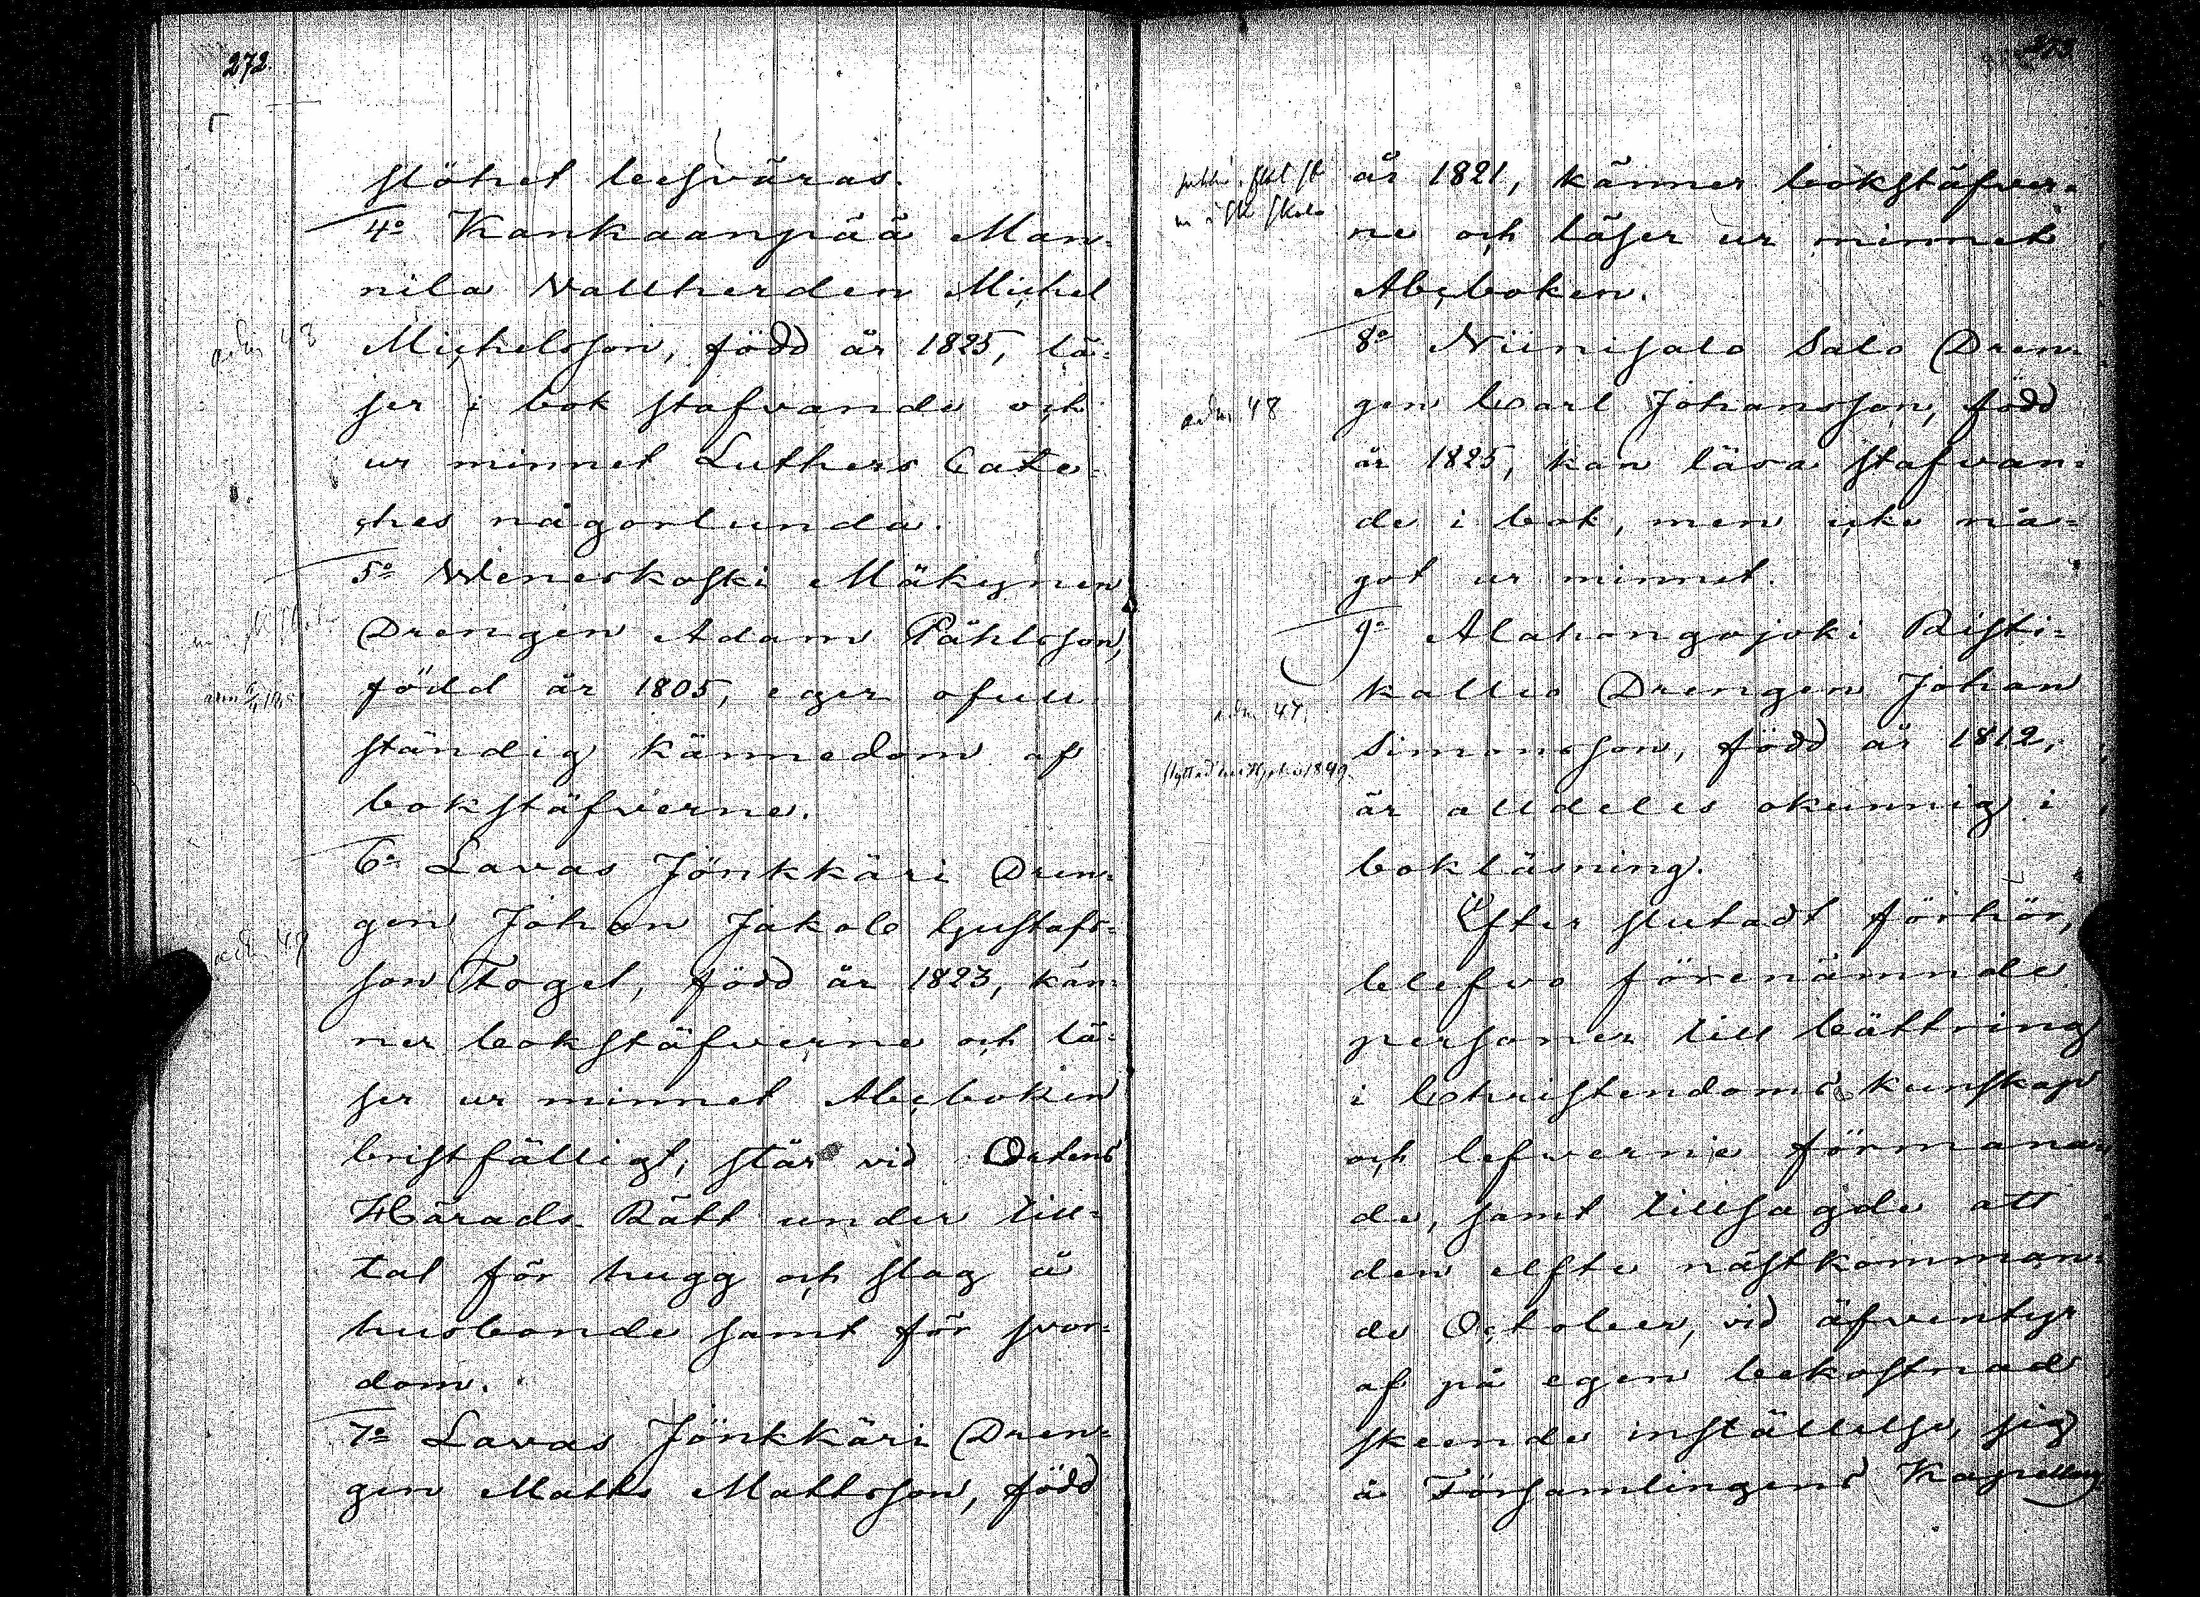 272.
slöhet besväras.
4o Kankaanpää Man=
nila Vallherden Michel
Michelsson, född år 1825, lä=
ser i bok stafvande och
ur minnet Luthers Cate=
ches någorlunda.
5o Weneskoski Mäkynen
Drengen Adam Påhlsson,
född år 1805, eger ofull
ständig kännedom af
bokstäfverne.
6o Lavas Jönkkäri Dren=
gen Johan Jakob Gustafs=
son Fogel, född år 1823, kän=
ner bokstäfverne och lä=
ser ur minnet Abcboken
bristfälligt; står vid Ortens
Härads Rätt under till=
tal för hugg och slag å
husbonde samt för svor=
dom.
7o Lavas Jönkkäri Dren=
gen Matts Mattsson, född
273
år 1821, känner bokstäfver=
ne och läser ur minnet
Abcboken.
8o Niinisalo Salo Dren=
adm. 48
gen Carl Johansson, född
år 1825, kan läsa stafvan=
de i bok, men icke nå=
got ur minnet.
9o Alahongojoki Risti=
kallio Drengen Johan
adm. 47.
Simonsson, född år 1812,
är alldeles okunnig i
bokläsning.
Efter slutadt förhör,
blefvo förenämnde
personer till bättring
i Christendoms kunskap
och lefverne förmana
de, samt tillsagde att
den elfte nästkomman=
de October, vid äfventyr
af på egen bekostnad
skeende inställelse, sig
å Församlingens